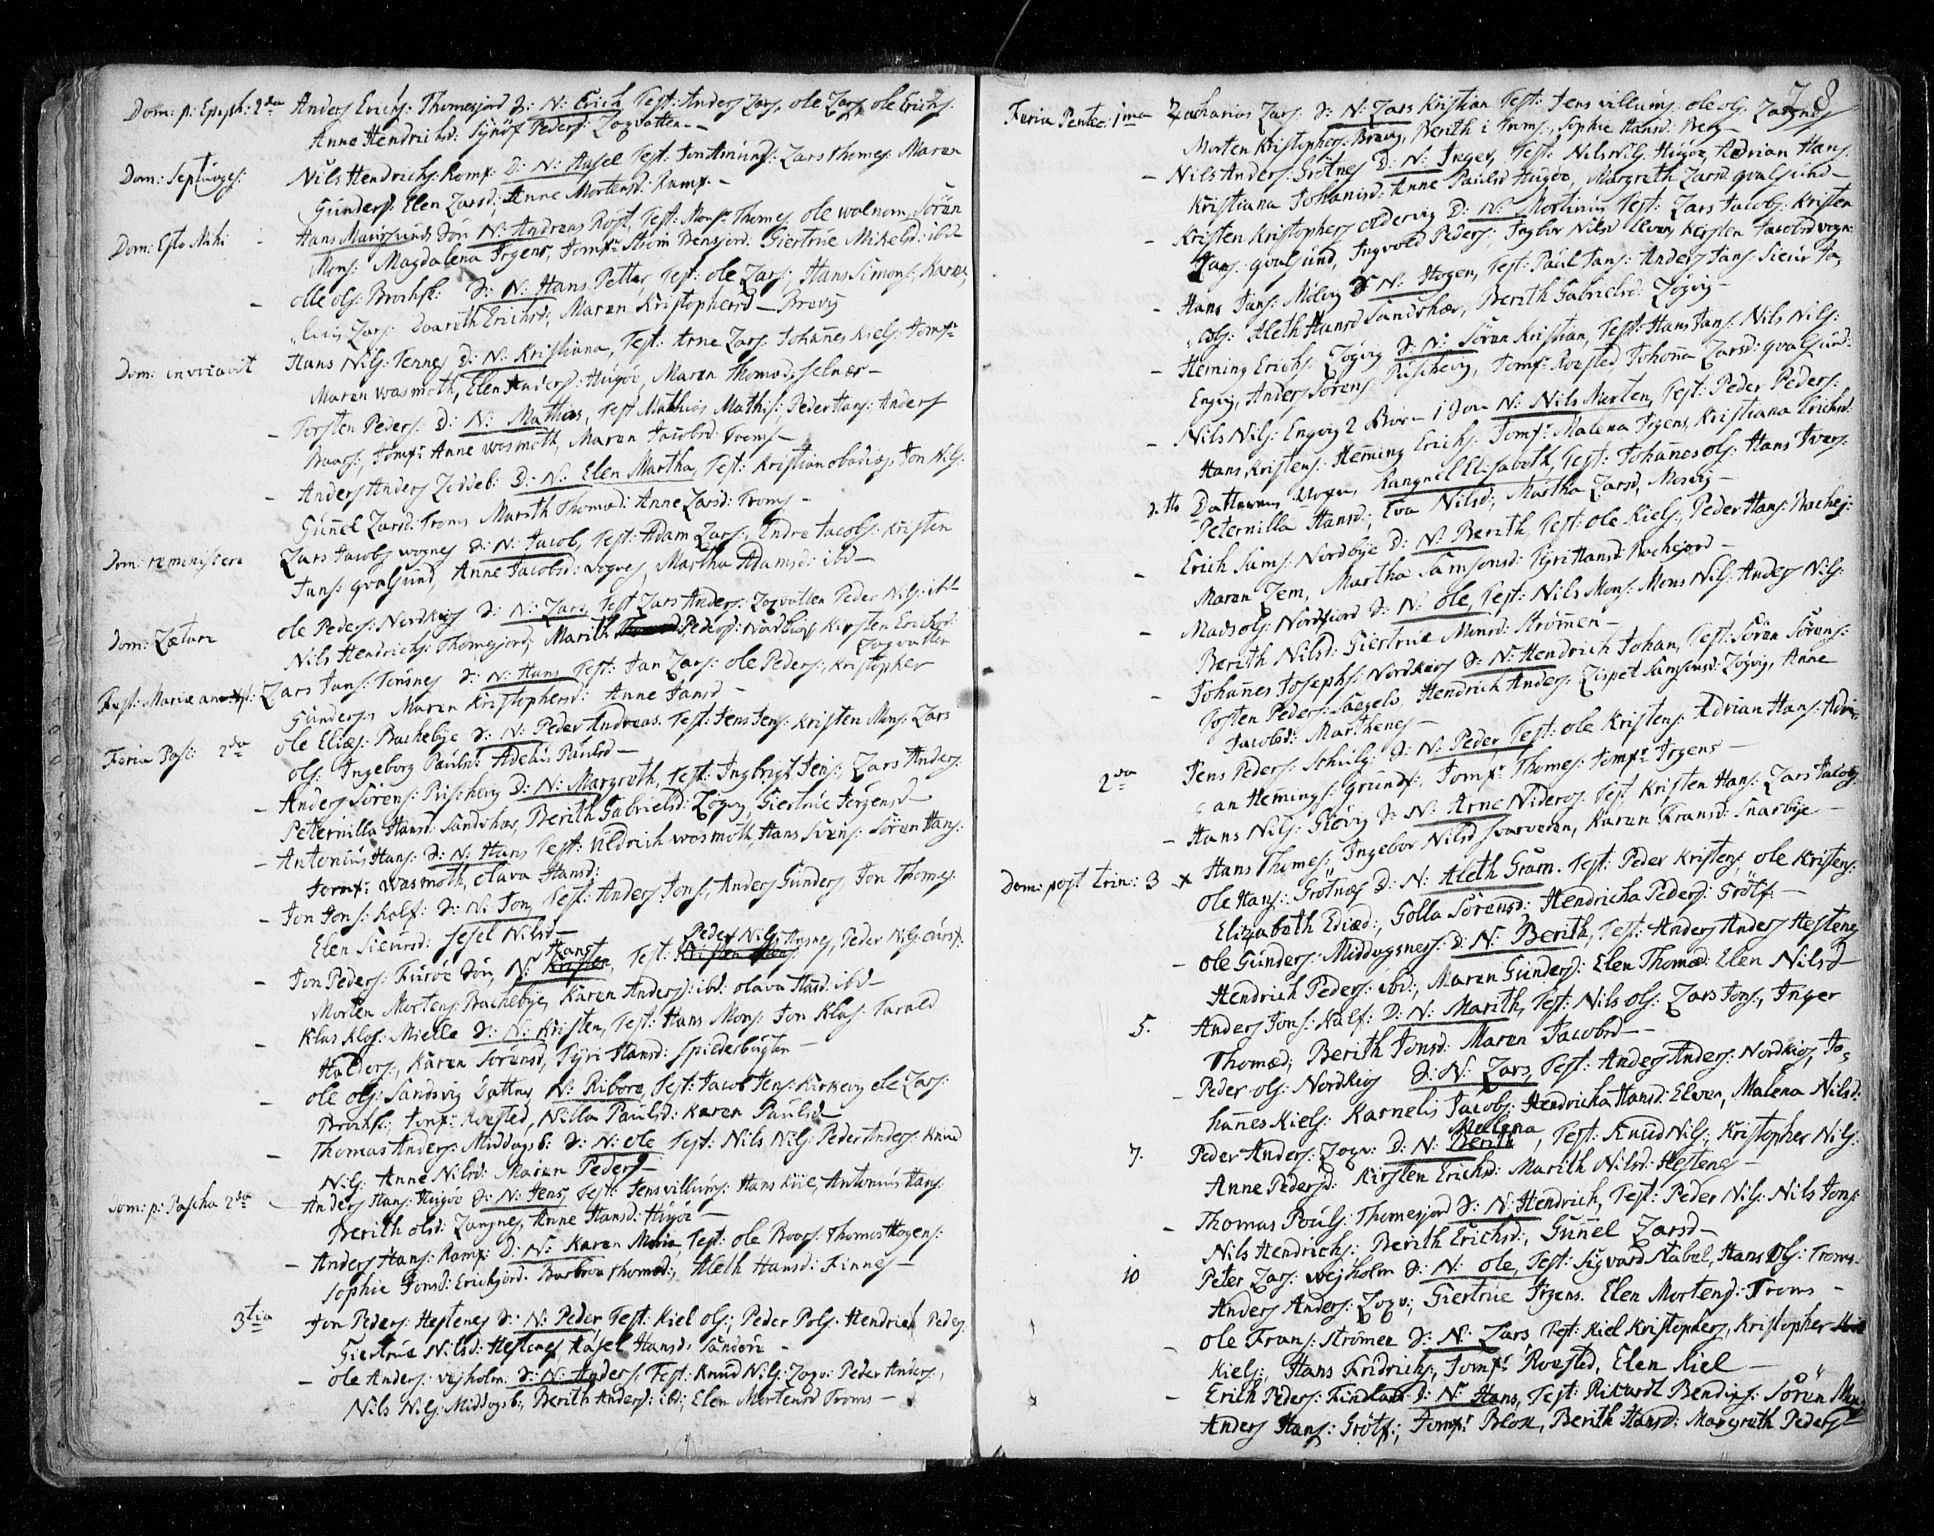 Dom: p: Epiph: 2da Anders Erichs: Thomesjord S: N: Erich Test: Anders Lars, ole Lars, ole Erichs:
Anne Hendrichsd: Synöf Peders: Logvatten —
Dom: Septuages: Nils Hendrichs: Ramf: D: N: Aasel Test: Jon Amunds: Lars Thomes: Maren
Gunders: Elen Larsd: Anne Mortensd: Ramf. —
Dom: Esto Mihi - Hans Maursunds Sön N: Andreas Rost, Test: Mons: Thomes, ole walnom, Sören
Mons: Magdalena Irgens, Jomf: Ström Bensjord: Giertrue Mikelsd: ibd
- olle ols: Brochsk: S: N: Hans Petter, Test: ole Lars:, Hans Simons:, Karen,
Lars: Doarith Erichsd:, Maren Kristophersd — Brevig
Dom: invocavit Hans Nils: Tennes D: N: Kristiana, Test: Arne Lars: Johañes Kiels: Jomf:
Maren wasmoth, Elen Andersd: Hugöe, Maren Thomasd: Selnær —
- Torsten Peders: D: N: Mathias, Test Mathias Mathis: Peder Hans: Anders
Baars: Jomf: Anne wosmoth, Maren Jacobsd: Troms —
- Anders Anders Leddeb: D: N: Elen Martha, Test: Kristian obadiæs, Jon Nils:
Guñel Larsd: Troms Marith Thomæd: Anne Larsd: Troms —
Dom: reminiscere Lars Jacobs wognes S: N: Jacob, Test: Adam Lars:, Endre Jacobs: Kristen
Jans: qvalsund, Anne Jacobsd: wognes, Martha Adamsd: ibd —
Dom: Lætare ole Peders: Nordkios S: N: Lars, Test Lars Anders: Logvatten Peder Nils: ibd
Nils Hendrichs: Thomesjord, Marith Pedersd: Nordkios Kirsten Erichsd:
Logvatten
Fest: Mariæ an: Lars Jans: Tönsnes S: N: Hans Test: Jan Lars: ole Peders:, Kristopher
Gunders: Maren Kristophersd: Anne Jansd —
Feria Pasc: 2da ole Eliæs: Bachebye S: N: Peder Andreas. Test: Jens Jens: Kristen Mons: Lars
ols: Ingeborg Paulsd: Adelus Paulsd —
- Anders Sörens: Pischevig D: N: Margreth, Test: Ingbrigt Jens: Lars Anders:
Peternilla Hansd: Sandshav, Berith Gabrielsd: Logvig, Giertrue Jörgensd —
- Antonius Hans: S: N: Hans Test: Uldrich wosmoth, Hans Svens: Sören Hans:
Jomf: wasmoth, olava Hansd:
- Jon Jons: Kalf: S: N: Jon, Test: Anders Jons:, Anders Gunders, Jon Thomes:
Elen Siewrsd: Sesel Nilsd —
Hans Peder Nils:
- Jon Peders: Furöe Sön, N: Kristen, Test: Kristen Hans: Arsnes, Peder Nils:
Morten Mortens: Bachebye, Karen Andersd: ibd: olava Hansd: ibd —
- Klas Klas: Mielle S: N: Kristen, Test: Hans Mons: Jon Klas: Tarald
Halders:, Karen Sörensd, Tyri Hansd: Spilderbugten —
- ole ols: Sandsvig Datter, N: Riborg, Test: Jacob Jens: Kirkevig ole Lars:
Brochsk:, Jomf: Roested, Nilla Paulsd: Karen Paulsd —
- Thomas Anders: Middagsb: S: N: ole Test: Nils Nils: Peder Anders: Knud
Nils: Anne Nilsd: Maren Peders —
Dom: p: Pascha 2da - Anders Hans: Hugöe S: N: Jens, Test: Jens villums: Hans Kiil, Antonius Hans:
Berith olsd: Langnes, Anne Hansd: Hugöe —
- Anders Hans: Ramf: D: N: Karen Maria Test: ole Baars: Thomas Hogens:
Sophie Jonsd: Erichjord: Barbroe Thomæd:, Aleth Hansd: Finnes —
3tia Jon Peders: Hestenes S: N: Peder Test: Kiel ols:, Peder Pols: Hendrich Peders,
Giertrue Nilsd: Hestenes Aasel Hansd: Sandöre —
- ole Anders: vejholm S: N: Anders, Test: Knud Nils: Logv: Peder Anders:,
Nils Nils: Middagsb:, Berith Andersd: ibd:, Elen Mortensd Troms —
78
Feria Pentec: 1ma Zacharias Lars: S: N: Lars Kristian Test: Jens villums: ole ols: Langnes
Morten Kristophers: Brevig, Berith i Troms:, Sophie Hansd: Berg —
- Nils Anders: Grötnes D: N: Inger, Test: Nils Nils: Hugöe, Adrian Hans:
Kristiana Johanisd: Anne Paulsd Hugöe, Margreth Larsd qvalsund —
- Kristen Kristophers oldervig D: N: Mortinus Test: Lars Jacobs: Kristen
Jans: qvalsund, Ingvold Peders: Ingbor Nilsd Elven, Kirsten Jacobsd vogn:
- Hans Jans: Mölvig S: N: Hogen, Test: Paul Jans: Anders Jans: Siewr Ja,
cobs: Aleth Hansd Sandshav, Berith Gabrielsd: Logvig —
- Heming Erichs: Logvig S: N: Sören Kristian, Test: Hans Jans: Nils Nils:
Engvig, Anders Sörens Pischevig, Jomf: Roested Johaña Larsd: qvalsund:
- Nils Nils: Engvig 2 Börn 1 Sön N: Nils Marten, Test: Peder Peders:
Hans Kristens: Heming Erichs: Jomf: Malena Irgens, Kristiana Erichsd:
d: Datteren Rangnel Elisabeth, Test: Johañes ols: Hans Ivers:
Peternilla Hansd:, Eva Nilsd:, Martha Larsd, Mosvig —
- Erich Sams: Nordbye D: N: Berith, Test: ole Kiels, Peder Hans: Bachej:
Maren Lem, Martha Samsonsd: Tyri Hansd: Bachejord —
- Mads ols: Nordfiord S: N: ole, Test: Nils Mons: Mons Nils: Anders Nils:
Berith Nilsd: Giertrue Monsd: Strömen —
- Johañes Josephs: Nordkios S: N: Hendrich Johan, Test: Sören Sörens:
Torsten Peders: Sægels, Hendrich Anders: Lispet Samsonsd: Logvig, Anne
Jacobsd: Marthenes —
2da Jens Peders: Schulg: S: N: Peder Test: ole Kristens: Adrian Hans: Adri,
an Hemings: Grundf:, Jomf: Thomes: Jomf: Irgens —
- Hans Nils: Glövig S: N: Arne Nideros, Test Kristen Hans: Lars Jacobs:
Hans Thomes: Ingebor Nilsd Svarvaren, Karen Fransd: Snarbye —
Dom: post trin: 3 x ole Hans: Grötnæs D: N: Aleth Gram. Test: Peder Kristens: ole Kristens:
Elizabeth Ediæd:, Golla Sörensd: Hendricha Pedersd: Grötf —
- ole Gunders: Middagsnes: D: N: Berith, Test: Anders Anders Hestenes
Hendrich Peders: ibd:, Maren Gundersd: Elen Thomæd: Elen Nilsd
5. Anders Jons: Kalf: D: N: Marith, Test: Nils ols: Lars Jons:, Inger
Thomæd:, Berith Jonsd: Maren Jacobsd —
- Peder ols: Nordkios S: N: Lars, Test: Anders Anders: Nordkios, Jo,
hañes Kiels: Karnelis Jacobs: Hendricha Hansd: Elven, Malena Nilsd:
Malena
7. Peder Anders: Logv: D: N: Berith, Test: Knud Nils:, Kristopher Nils:
Anne Pedersd: Kirsten Erichsd: Marith Nilsd: Hestenes —
- Thomas Pouls: Thomesjord S: N: Hendrich, Test: Peder Nils: Nils Jons:
Nils Hendrichs:, Berith Erichsd:, Guñel Larsd —
10 Peter Lars: wejholm S: N: ole, Test: Sigvard Stabel, Hans Ols: Troms.
Anders Anders: Logv:, Giertrue Irgens. Elen Mortensd: Troms —
- ole Frans: Strömen S: N: Lars Test: Kiel Kristophers, Kristopher
Kiels:, Hans Fridrichs:, Jomf: Roested, Elen Kiel —
- Erich Peders: Findland: S: N: Hans, Test: Rikardt Bendixs: Sören
Anders Hans: Grötf:, Jomf: Block, Berith Hansd: Margreth Peders